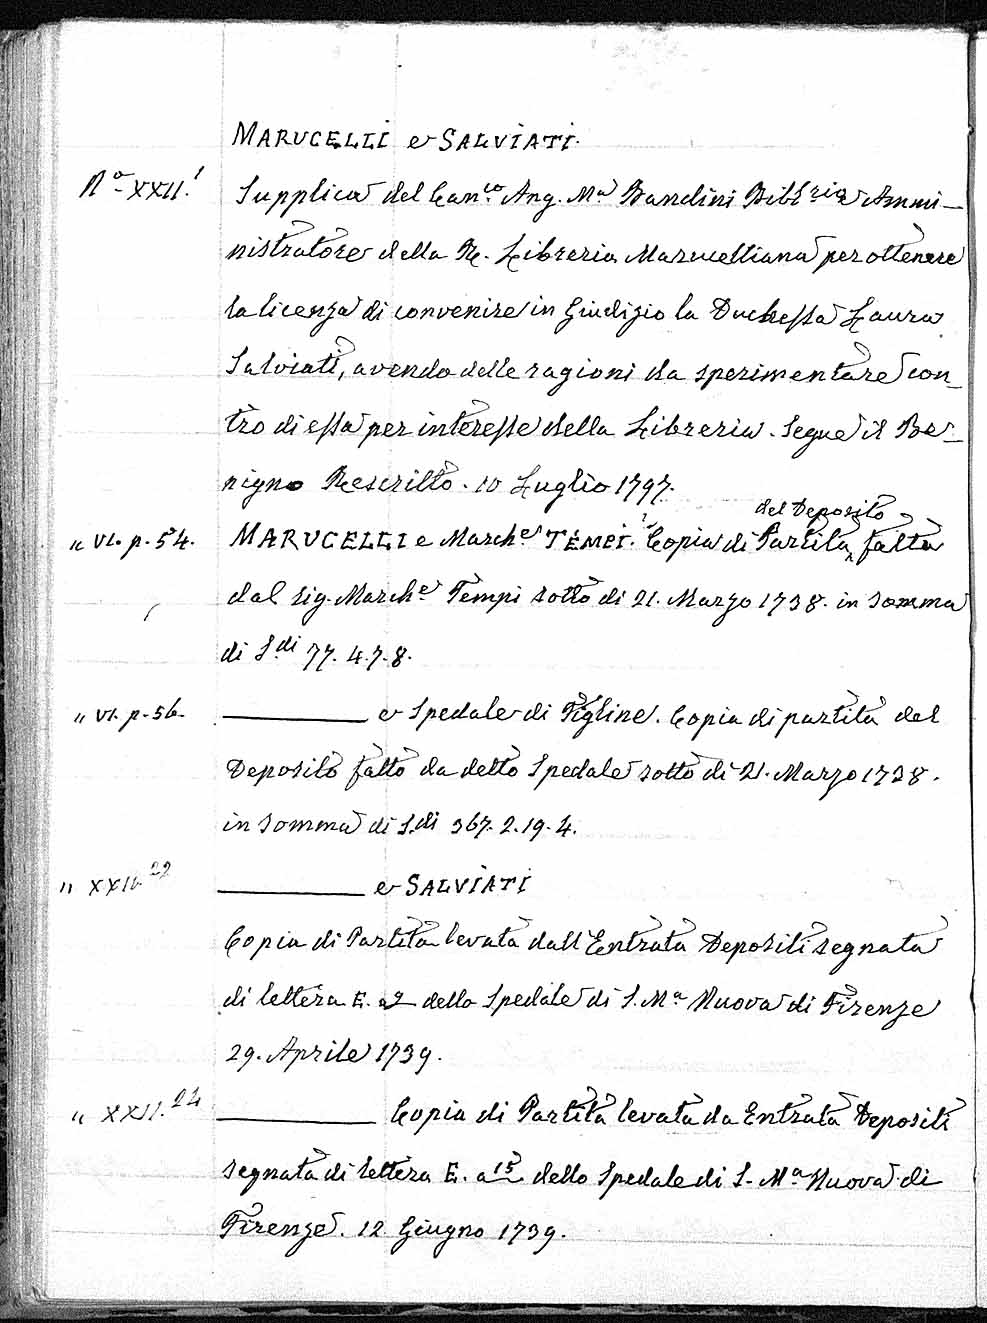 MARUCELLI e SALVIATI.
No. XXII.1 Supplica del Canco Ang. Ma Bandini Bibrio e Ammi-
nistratore della R. Libreria Marucelliana per ottenere
la licenza di convenire in Giudizio la Duchessa Laura
Salviati, avendo delle ragioni da sperimentare con_
tro di essa per interesse della Libreria. Segue il Be-
nigno Rescritto. 10 Luglio 1797.
del Deposito
" VI. p. 54. MARUCELLI e Marche TEMPI. Copia di Partita fatta
dal sig. Marche Tempi sotto di 21. Marzo 1738. in somma
di Sdi 77. 4. 7. 8.
" VI. p. 56. ——— e Spedale di Figline. Copia di partita del
Deposito fatto da detto Spedale sotto di 21. Marzo 1738.
in somma di S.di 367. 2. 19. 4.
" XXII. 22 ——— e SALVIATI
Copia di Partita levata dall'Entrata Depositi segnata
di lettera E. a 2 dello Spedale di S. Ma Nuova di Firenze
29. Aprile 1739.
" XXII. 24 ——— Copia di Partita levata da Entrata Depositi
segnata di lettera E. a 15 dello Spedale di S. Ma Nuova di
Firenze. 12 Giugno 1739.